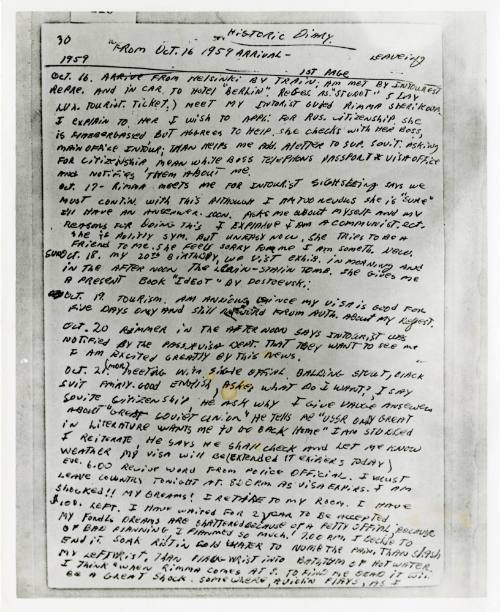 30
HISTORIC DIARY
"FROM OCT. 16 1959 ARRIVAL -
LEAVEING
1959
1ST PAGE
OCT. 16. ARRIVE FROM HELSINKI BY TRAIN; AM MET BY INTOUREST
REPRE. AND IN CAR TO HOTEL "BERLIN". REGES. AS. STUDET 5 DAY
LUX. TOURIST. TICKET.) MEET MY INTORIST GUIED RIMMA SHERIKOVA
I EXPLAIN TO HER I WISH TO APPLI. FOR RUS. CITIZENSHIP. SHE
IS FLABBERGASSED BUT AGGREES TO HELP. SHE CHECKS WITH HER BOSS,
MAIN OFFICE INTOUR; THAN HELPS ME ADD. A LETTER TO SUP. SOVIT. ASKING
FOR CITIZENSHIP MEAN WHILE BOSS TELEPHONS PASSPORT & VISA OFFICE
AND NOTIFIES THEM ABOUT ME.
OCT. 17- RIMMA MEETS ME FOR INTOURIST SIGHTSEEING SAYS WE
MUST CONTIN. WITH THIS ALTHOUGH I AM TOO NERVOUS SHE IS "SURE"
I'LL HAVE AN ANSEWER SOON. ASKS ME ABOUT MYSELF AND MY
REASONS FOR DOING THIS I EXPLAINE I AM A COMMUNIST, ECT.
SHE IS POLITLY SYM. BUT UNEASY NOW. SHE TRIES TO BE A
FRIEND TO ME. SHE FEELS SORRY FOR ME I AM SOMETH. NEW.
SUN OCT. 18. MY 20TH BIRTHDAY, WE VIST EXHIB. IN MORNING AND
IN THE AFTER NOON THE LENIN-STALIN TOMB. SHE GIVES ME
A PRESENT BOOK "IDEOT" BY DOSTOEVSKI.
OCT. 19. TOURISM. AM ANXIOUS SINCE MY VISA IS GOOD FOR
FIVE DAYS ONLY AND STILL NO WORD FROM AUTH. ABOUT MY REQEST.
OCT. 20 RIMMER IN THE AFTER NOON SAYS INTOURIST WAS
NOTIFIED BY THE PASS & VISA DEPT. THAT THEY WANT TO SEE ME
I AM EXCITED GREATLY BY THIS NEWS.
OCT. 21 (MOR) MEETING WITH SINGLE OFFIAL. BALDING STOUT, BLACK
SUIT FAIRLY. GOOD ENGLISH, ASKS WHAT DO I WANT?, I SAY
SOVITE CITIZENSHIP, HE ASK WHY I GIVE VAUGE ANSEWERS
ABOUT "GREAT SOVIET UNION" HE TELLS ME "USSR ONLY GREAT
IN LITERATURE WANTS ME TO GO BACK HOME" I AM STUNNED
I REITERATE, HE SAYS HE SHALL CHECK AND LET ME KNOW
WEATHER MY VISA WILL BE (EXTENDED IT EXIPIERS TODAY)
EVE. 6.00 RECIVE WORD FROM POLICE OFFICIAL. I MUST
LEAVE COUNTRY TONIGHT AT. 8.00 P.M. AS VISA EXPIRS. I AM
SHOCKED!! MY DREAMS! I RETIRE TO MY ROOM. I HAVE
$100. LEFT. I HAVE WAITED FOR 2 YEAR TO BE ACCEPTED.
MY FONDES DREAMS ARE SHATTERED BECAUSE OF A PETTY OFFIAL, BECAUSE
OF BAD PLANNING I PLANNED SO MUCH! 7.00 P.M. I DECIDE TO
END IT. SOAK RIST IN COLD WATER TO NUMB THE PAIN, THAN SLASH
MY LEFTWRIST, THAN PLAUG WRIST INTO BATHTUM OF HOT WATER.
I THINK "WHEN RIMMA COMES AT 8. TO FIND ME DEAD IT WILL
BE A GREAT SHOCK. SOMEWHERE, A VIOLIN PLAYS, AS I